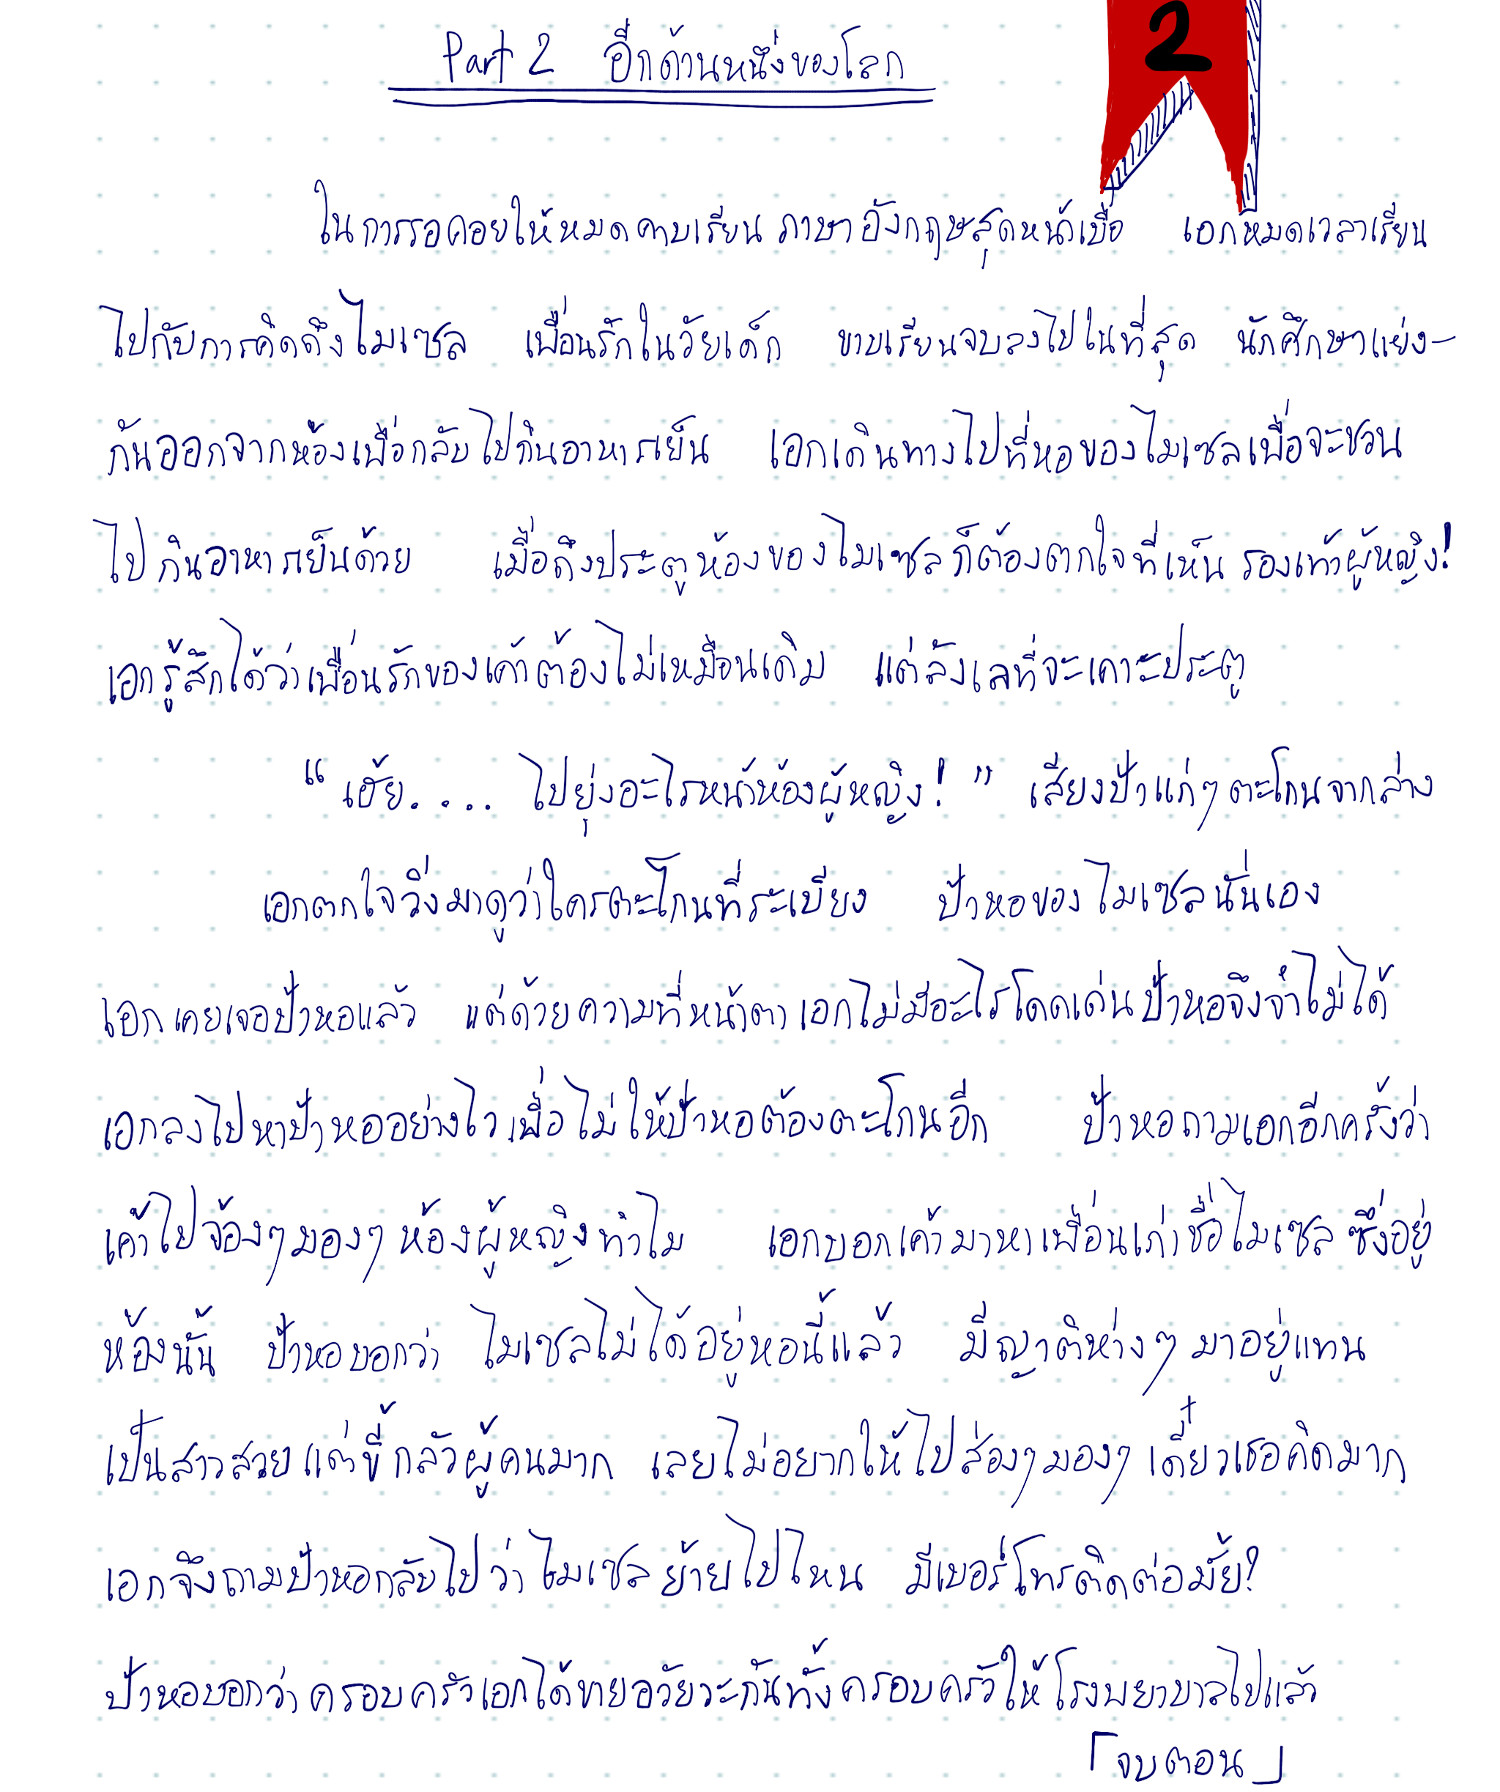 2
Part 2 อีกด้านหนึ่งของโลก
ในการรอคอยให้หมดคาบเรียนภาษาอังกฤษสุดหน้าเบื่อ เอกหมดเวลาเรียน
ไปกับการคิดถึงไมเซล เพื่อนรักในวัยเด็ก คาบเรียนจบลงไปในที่สุด นักศึกษาแย่ง-
กันออกจากห้องเพื่อกลับไปกินอาหารเย็น เอกเดินทางไปที่หอของไมเซลเพื่อจะชวน
ไปกินอาหารเย็นด้วย เมื่อถึงประตูห้องของไมเซลก็ต้องตกใจที่เห็นรองเท้าผู้หญิง!
เอกรู้สึกได้ว่าเพื่อนรักของเค้าต้องไม่เหมือนเดิม แต่ลังเลที่จะเคาะประตู
“เฮ้ย.... ไปยุ่งอะไรหน้าห้องผู้หญิง!” เสียงป้าแก่ๆตะโกนจากล่าง
เอกตกใจวิ่งมาดูว่าใครตะโกนที่ระเบียง ป้าหอของไมเซลนั่นเอง
เอกเคยเจอป้าหอแล้ว แต่ด้วยความที่หน้าตาเอกไม่มีอะไรโดดเด่นป้าหอจึงจำไม่ได้
เอกลงไปหาป้าหออย่างไวเพื่อไม่ให้ป้าหอต้องตะโกนอีก ป้าหอถามเอกอีกครั้งว่า
เค้าไปจ้องๆมองๆห้องผู้หญิงทำไม เอกบอกเค้ามาหาเพื่อนเก่าชื่อไมเซลซึ่งอยู่
ห้องนั้น ป้าหอบอกว่า ไมเซลไม่ได้อยู่หอนี้แล้ว มีญาติห่างๆมาอยู่แทน
เป็นสาวสวยแต่ขี้กลัวผู้คนมาก เลยไม่อยากให้ไปส่องๆมองๆ เดี๋ยวเธอคิดมาก
เอกจึงถามป้าหอกลับไปว่าไมเซลย้ายไปไหน มีเบอร์โทรติดต่อมั้ย?
ป้าหอบอกว่าครอบครัวเอกได้ขายอวัยวะกันทั้งครอบครัวให้โรงพยาบาลไปแล้ว
「จบตอน」